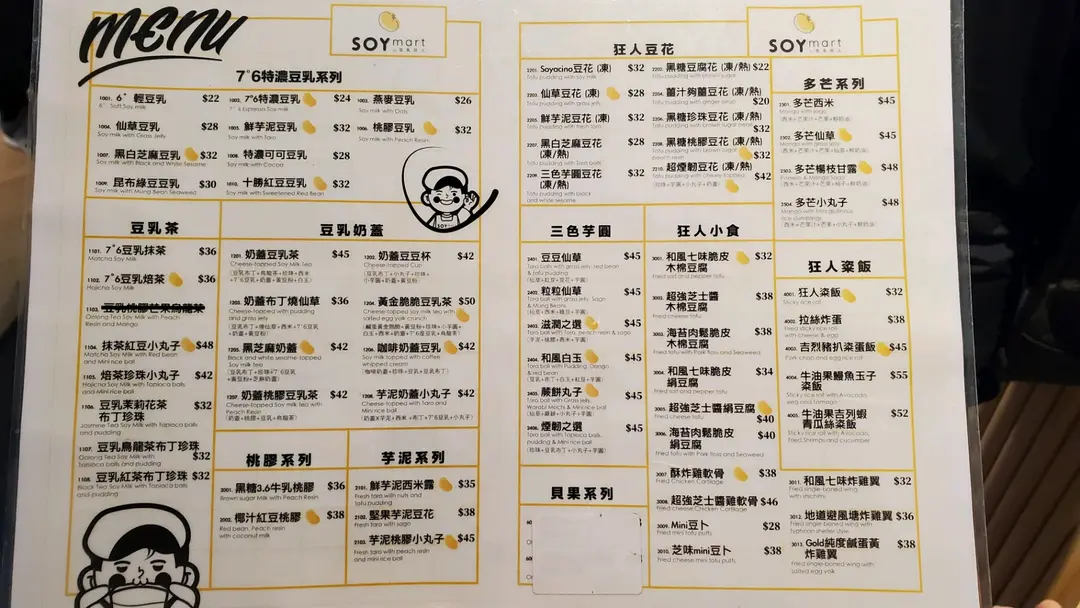 MENU
SOYmart
7°6特濃豆乳系列
1001. 6°輕豆乳 $22
6° Soft Soy milk
1002. 7°6特濃豆乳 $24
7°6 Espresso Soy milk
1003. 燕麥豆乳 $26
Soy milk with Oats
1004. 仙草豆乳 $28
Soy milk with Grass Jelly
1005. 鮮芋泥豆乳 $32
Soy milk with Taro
1006. 桃膠豆乳 $32
Soy milk with Peach Resin
1007. 黑白芝麻豆乳 $32
Soy milk with Black and White Sesame
1008. 特濃可可豆乳 $28
Soy milk with Cocoa
1009. 昆布綠豆豆乳 $30
Soy milk with Mung Bean Seaweed
1010. 十勝紅豆豆乳 $32
Soy milk with Sweetened Red Bean
豆乳茶
1101. 7°6豆乳抹茶 $36
Matcha Soy Milk
1102. 7°6豆乳焙茶 $36
Hojicha Soy Milk
1103. 豆乳桃膠芒果烏龍茶
Oolong Tea Soy Milk with Peach
Resin and Mango
1104. 抹茶紅豆小丸子 $48
Matcha Soy Milk with Red bean
and Mini rice ball
1105. 焙茶珍珠小丸子 $42
Hojicha Soy Milk with Tapioca balls
and Mini rice ball
1106. 豆乳茉莉花茶
布丁珍珠 $32
Jasmine Tea Soy Milk with Tapioca balls
and pudding
1107. 豆乳烏龍茶布丁珍珠 $32
Oolong Tea Soy Milk with
Tapioca balls and pudding
1108. 豆乳紅茶布丁珍珠 $32
Black Tea Soy Milk with Tapioca balls
and pudding
豆乳奶蓋
1201. 奶蓋豆乳茶 $45
Cheese-topped Soy Milk Tea
(豆乳布丁+烏龍茶+珍珠+西米
+7°6豆乳+奶蓋+黃豆粉+白玉)
1202. 奶蓋豆豆杯 $42
Cheese-topped Cup
(紅豆+豆乳布丁+小丸子+珍珠+
小芋圓+奶蓋+黃豆粉)
1203. 奶蓋布丁燒仙草 $36
Cheese-topped with pudding
and grass jelly
(豆乳布丁+燒仙草+西米+7°6豆乳
+奶蓋+黃豆粉)
1204. 黃金脆脆豆乳茶 $50
Cheese-topped soy milk tea with
salted egg yolk crunch
1205. 黑芝麻奶蓋 $42
Black and white sesame-topped
Soy milk tea
1206. 咖啡奶蓋豆乳 $42
Soy milk topped with coffee
whipped cream
(咖啡奶蓋+珍珠+豆乳+豆乳布丁)
1207. 奶蓋桃膠豆乳茶 $42
Cheese-topped Soy milk tea with
Peach Resin
(奶蓋+桃膠+豆乳+烏龍茶)
1208. 芋泥奶蓋小丸子 $42
Cheese-topped with Taro and
Mini rice ball
(奶蓋X芋泥+西米+布丁+7°6豆乳+小丸子)
桃膠系列
2001. 黑糖3.6牛乳桃膠 $36
Brown sugar Milk with Peach Resin
2002. 椰汁紅豆桃膠 $38
Red bean, Peach resin
with coconut milk
芋泥系列
2101. 鮮芋泥西米露 $35
Fresh taro with nuts and
tofu pudding
2102. 堅果芋泥豆花 $38
Fresh taro with sago
2103. 芋泥桃膠小丸子 $45
Fresh taro with peach resin
and mini rice ball
狂人豆花
2201. Soyacino豆花 (凍) $32
Tofu pudding with soy milk
2202. 黑糖豆腐花 (凍/熱) $22
Tofu pudding with brown sugar
2203. 仙草豆花 (凍) $28
Tofu pudding with grass jelly
2204. 薑汁夠薑豆花 (凍/熱) $20
Tofu pudding with ginger syrup
2205. 鮮芋泥豆花 (凍) $32
Tofu pudding with fresh taro
2206. 黑糖珍珠豆花 (凍/熱) $32
Tofu pudding with brown sugar pearl
2207. 黑白芝麻豆花
(凍/熱) $28
Tofu pudding with Taro balls
2208. 黑糖桃膠豆花 (凍/熱) $32
Tofu pudding with brown sugar
peach resin
2209. 三色芋圓豆花
(凍/熱) $32
Tofu pudding with black
and white sesame
2210. 超煙韌豆花 (凍/熱) $42
Tofu pudding with chewy topping
(珍珠+芋圓+小丸子+奶蓋)
三色芋圓
2401. 豆豆仙草 $45
Taro balls with grass jelly, red bean
& tofu pudding
(仙草+紅豆+豆花+芋圓)
2402. 粒粒仙草 $45
Taro ball with Grass jelly, Sago
& Mung Beans
(仙草+西米+綠豆+芋圓)
2403. 滋潤之選 $45
Taro ball with Tofu, peach resin & sago
(芋泥+桃膠+西米+芋圓)
2404. 和風白玉 $45
Taro ball with Pudding, Dango
& red bean
(豆乳布丁+白玉+紅豆+芋圓)
2405. 蕨餅丸子 $45
Taro ball with Grass jelly
Warabi Mochi & Mini rice ball
(仙草+蕨餅+小丸子+芋圓)
2406. 煙韌之選 $45
Taro ball with tapioca balls,
pudding & Mini rice ball
(珍珠+豆乳布丁+小丸子+芋圓)
貝果系列
狂人小食
3001. 和風七味脆皮
木棉豆腐 $32
Fried salt and pepper tofu
3002. 超強芝士醬
木棉豆腐 $38
Fried cheese tofu
3003. 海苔肉鬆脆皮
木棉豆腐 $38
Fried tofu with Pork floss and Seaweed
3004. 和風七味脆皮
絹豆腐 $34
Fried salt and pepper tofu
3005. 超強芝士醬絹豆腐 $40
Fried cheese tofu
3006. 海苔肉鬆脆皮
絹豆腐 $40
Fried tofu with Pork floss and Seaweed
3007. 酥炸雞軟骨 $38
Fried Chicken Cartilage
3008. 超強芝士醬雞軟骨 $46
Fried cheese Chicken Cartilage
3009. Mini豆卜 $28
Fried mini tofu puffs
3010. 芝味mini豆卜 $38
Fried cheese mini tofu puffs
SOYmart
多芒系列
2301. 多芒西米 $45
Mango with sago
(西米+芒果汁+芒果+鮮奶油)
2302. 多芒仙草 $45
Mango with grass jelly
2303. 多芒楊枝甘露 $48
Pomelo & Mango Sago
2304. 多芒小丸子 $48
Mango with mini glutinous
rice dumplings
狂人粢飯
4001. 狂人粢飯 $32
Fried sticky rice roll
4002. 拉絲炸蛋 $38
Fried sticky rice roll
with cheese & egg
4003. 吉烈豬扒粢蛋飯 $45
Pork chop and egg rice roll
4004. 牛油果鰻魚玉子
粢飯 $55
Sticky rice roll with Avocado,
eel and Tamago
4005. 牛油果吉列蝦
青瓜絲粢飯 $52
Sticky rice roll with Avocado,
Fried Shrimps and cucumber
3011. 和風七味炸雞翼 $32
Fried single-boned wing
with shichimi
3012. 地道避風塘炸雞翼 $36
Fried single-boned wing with
typhoon shelter style
3013. Gold純度鹹蛋黃
炸雞翼 $38
Fried single-boned wing with
salted egg yolk